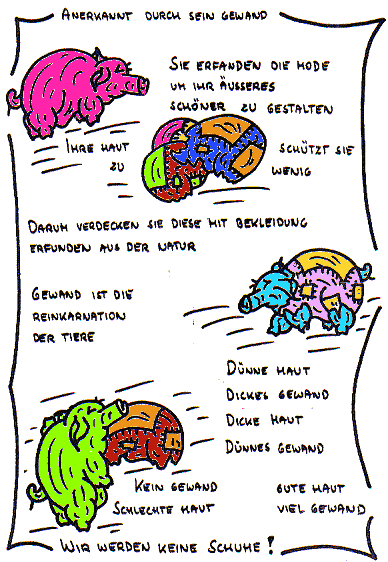 Anerkannt durch sein Gewand
Sie erfanden die Mode
um ihr äusseres
schöner zu gestalten
Ihre Haut schützt sie
zu wenig
Darum verdecken sie diese mit Bekleidung
erfunden aus der Natur
Gewand ist die
Reinkarnation
der Tiere
Dünne Haut
Dickes Gewand
Dicke Haut
Dünnes Gewand
Kein Gewand gute Haut
Schlechte Haut viel Gewand
Wir werden keine Schuhe!